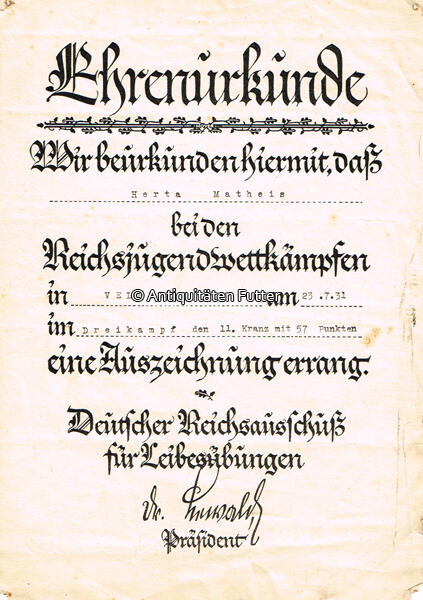 Ehrenurkunde
Wir beurkunden hiermit, daß
Herta Matheis
bei den
Reichsjugendwettkämpfen
in am 23.7.31
© Antiquitäten Futten
im Dreikampf den 11. Kranz mit 57 Punkten
eine Auszeichnung errang.
Deutscher Reichsausschuß
für Leibesübungen
Dr. Lewald
Präsident